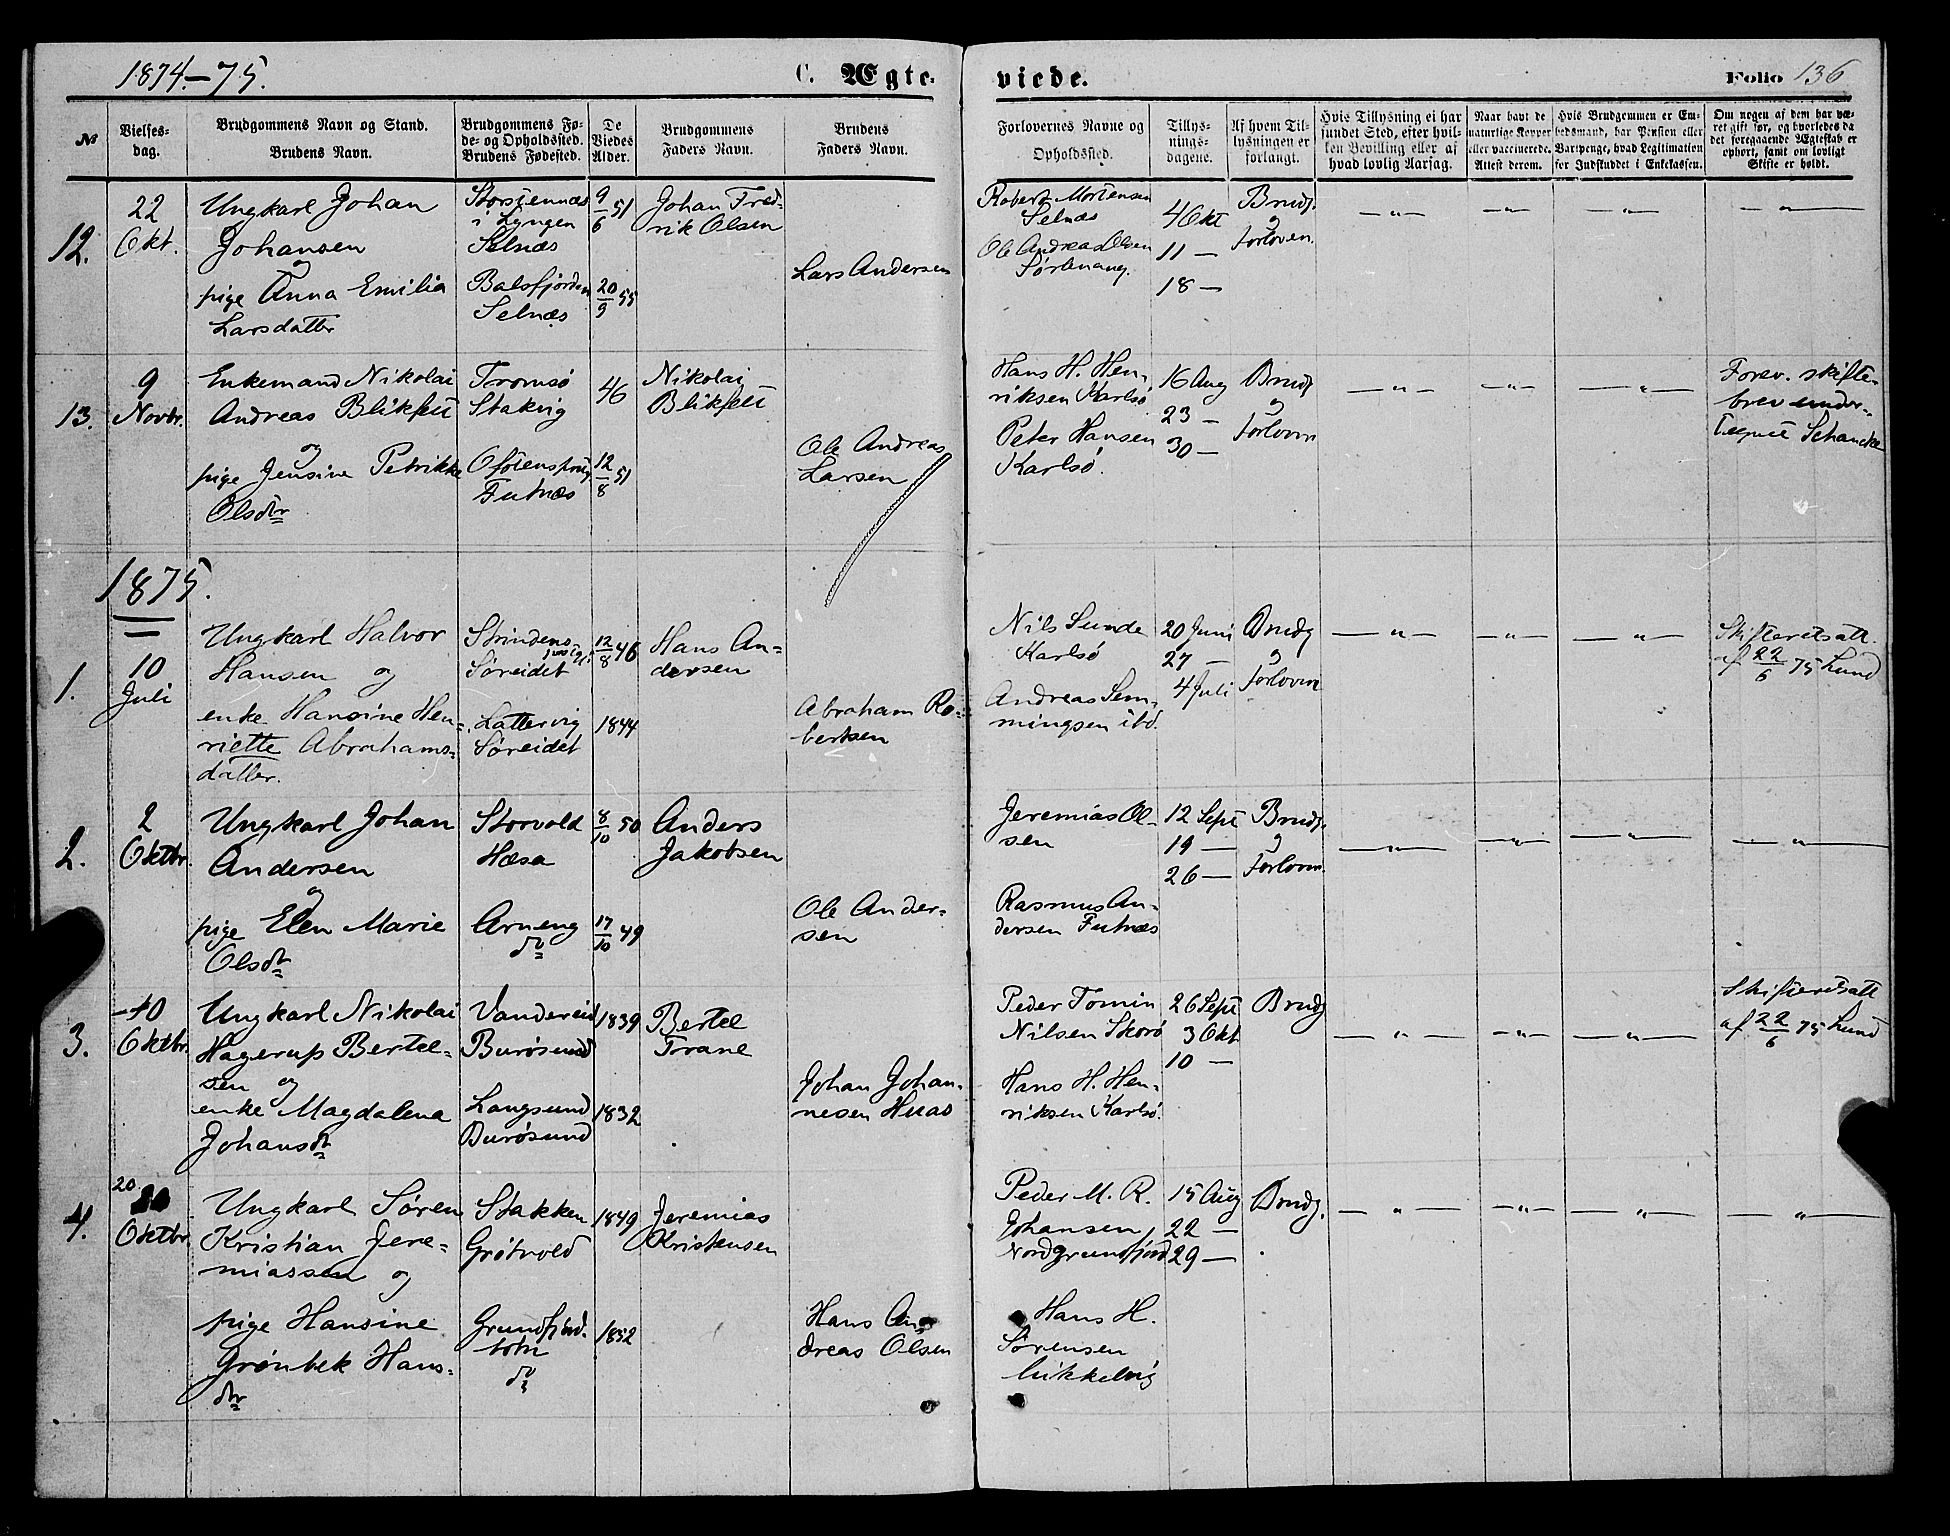 1874-75.
C. Ægte-
viede.
Folio 136
No
Vielses-
dag.
Brudgommens Navn og Stand.
Brudens Navn.
Brudgommens Fø-
de- og Opholdssted.
Brudens Fødested.
De
Viedes
Alder.
Brudgommens
Faders Navn.
Brudens
Faders Navn.
Forlovernes Navne og
Opholdssted.
Tillys-
nings-
dagene.
Af hvem Til-
lysningen er
forlangt.
Hvis Tillysning ei har
fundet Sted, efter hvil-
ken Bevilling eller af
hvad lovlig Aarsag.
Naar havt de
naturlige Kopper
eller vaccinerede.
Attest derom.
Hvis Brudgommen er Em-
bedsmand, har Pension eller
Vartpenge, hvad Legitimation
for Indskuddet i Enkekassen.
Om nogen af dem har væ-
ret gift før, og hvorledes da
det foregaaende Ægteskab er
ophørt, samt om lovligt
Skifte er holdt.
12.
22
Okt.
Ungkarl Johan
Johansen
og
pige Anna Emilia
Larsdatter
Storstennæs
i Lyngen
Selnæs
Balsfjorden
Selnæs
9/6 51
20/9 55
Johan Fred-
rik Olsen
Lars Andersen
Robert Mortensen
Selnæs
Ole Andreas Olsen
Sørlenang.
4 Okt
11 —
18 —
Brudg.
og
Forloven.
— „ —
— „ —
— „ —
— „ —
13.
9
Novbr.
Enkemand Nikolai
Andreas Blikfelt
og
pige Jensine Petrikke
Olsdtr
Tromsø
Stakvig
Futnæs
46
12/8 51
Nikolai
Blikfelt
Ole Andreas
Larsen
Hans H. Hen-
riksen Karlsø
Peter Hansen
Karlsø.
16 Aug
23 —
30 —
Brudg
og
Forloven
— „ —
— „ —
— „ —
Forev. skifte-
brev under-
tegnet Schancke
1875.
1.
10
Juli
Ungkarl Halvor
Hansen og
enke Hansine Hen-
riette Abrahams-
datter.
Strindens
Søreidet
Lattervig
Søreidet
12/8 46
1844
Hans An-
dersen
Abraham Ro-
bertsen
Nils Sunde
Karlsø
Andreas Sem-
mingsen ibd.
20 Juni
27 —
4 Juli
Brudg
og
Forloven
— „ —
— „ —
— „ —
Skifteretsatt.
af 22/6 75 Lund
2.
2
Oktbr.
Ungkarl Johan
Andersen
og
pige Elen Marie
Olsdtr
Storvold
Hæsa
Arneng
do
8/10 50
17/10 49
Anders
Jakobsen
Ole Ander-
sen
Jeremias Ol-
sen
Rasmus An-
dersen Futnæs
12 Sept
19 —
26 —
Brudg.
og
Forloven.
— „ —
— „ —
— „ —
— „ —
3.
10
Oktbr.
Ungkarl Nikolai
Hagerup Bertel-
sen og
enke Magdalena
Johansdtr
Vandereid
Burøsund
Langsund
Burøsund
1839
1832
Bertel
Trane
Johan Johan-
nesen Huas
Peder Tomin
Nilsen Skorø
Hans H. Hen-
riksen Karlsø.
26 Sept
3 Okt
10 —
Brudg
— „ —
— „ —
— „ —
Skifteretsatt
af 22/6 75 Lund
4.
20
Oktbr.
Ungkarl Søren
Kristian Jere-
miassen og
pige Hansine
Grønbek Hans-
dtr
Stakken
Grøtvold
Grundfjord-
botn
do
1849
1852
Jeremias
Kristensen
Hans An-
dreas Olsen
Peder M. R.
Johansen,
Nordgrundfjord
Hans H.
Sørensen
Mikkelvig
15 Aug
22 —
29 —
Brudg.
— „ —
— „ —
— „ —
— „ —